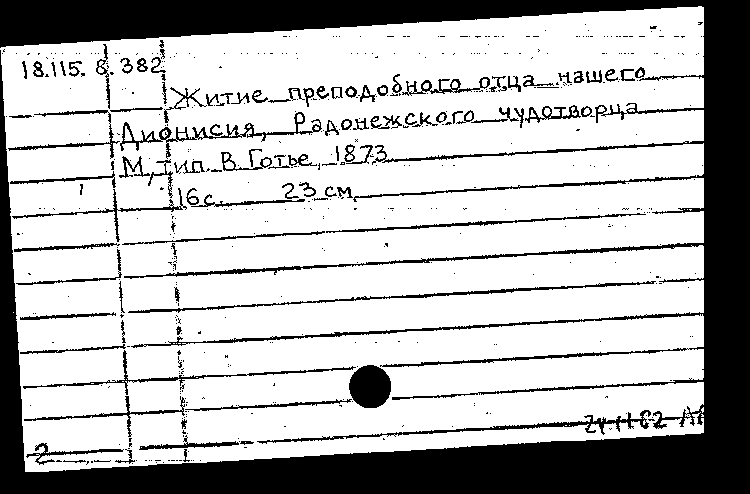 18.115.8.382
Житие преподобного отца нашего
Дионисия, Радонежского чудотворца
М, тип. В. Готье, 1873
16с. 23 см
2